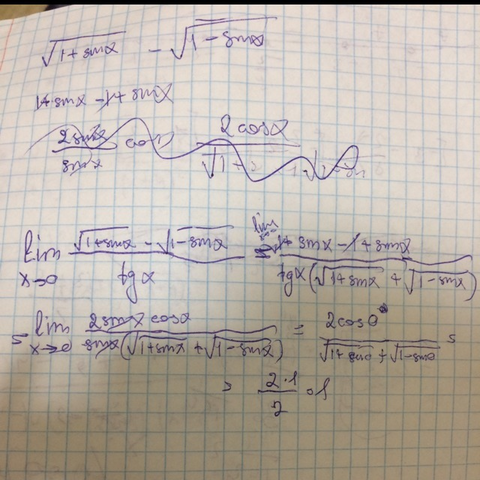 √(1+sinx) − √(1−sinx)
1+sinx − 1+sinx
2sinx / sinx cos 2cosx / √1+
lim x→0 (√(1+sinx) − √(1−sinx)) / tgx = lim x→0 (1+sinx−1+sinx) / (tgx(√(1+sinx) + √(1−sinx)))
= lim x→0 (2sinx cosx) / (sinx(√(1+sinx) + √(1−sinx))) = 2cos0 / (√(1+sin0) + √(1−sin0)) =
= 2·1 / 2 = 1